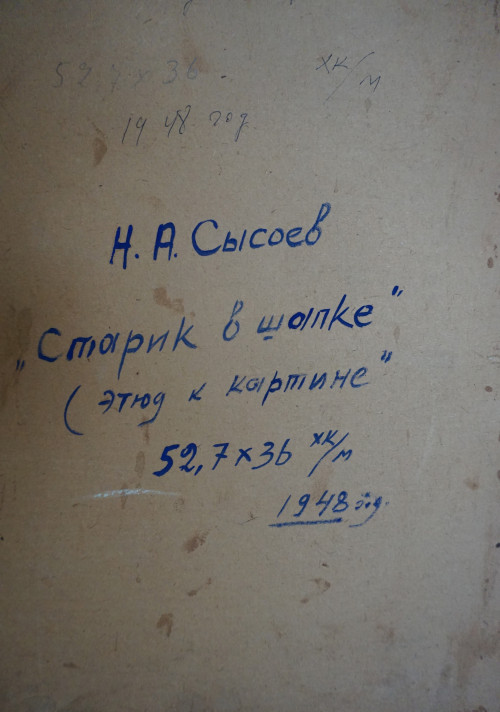 52,7 х 36. хк/м
1948 год
Н. А. Сысоев
„Старик в шапке"
( этюд к картине"
52,7 х 36 хк/м
1948 год.